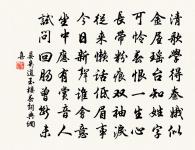 清歌學得秦娥似
金屋瑤台知姓字
可憐春恨一生心
長帶粉痕雙袖淚
從來懶話低眉事
今日新聲誰會意
坐中應有賞音人
試問回腸曾斷未
晏幾道玉樓春詞典網